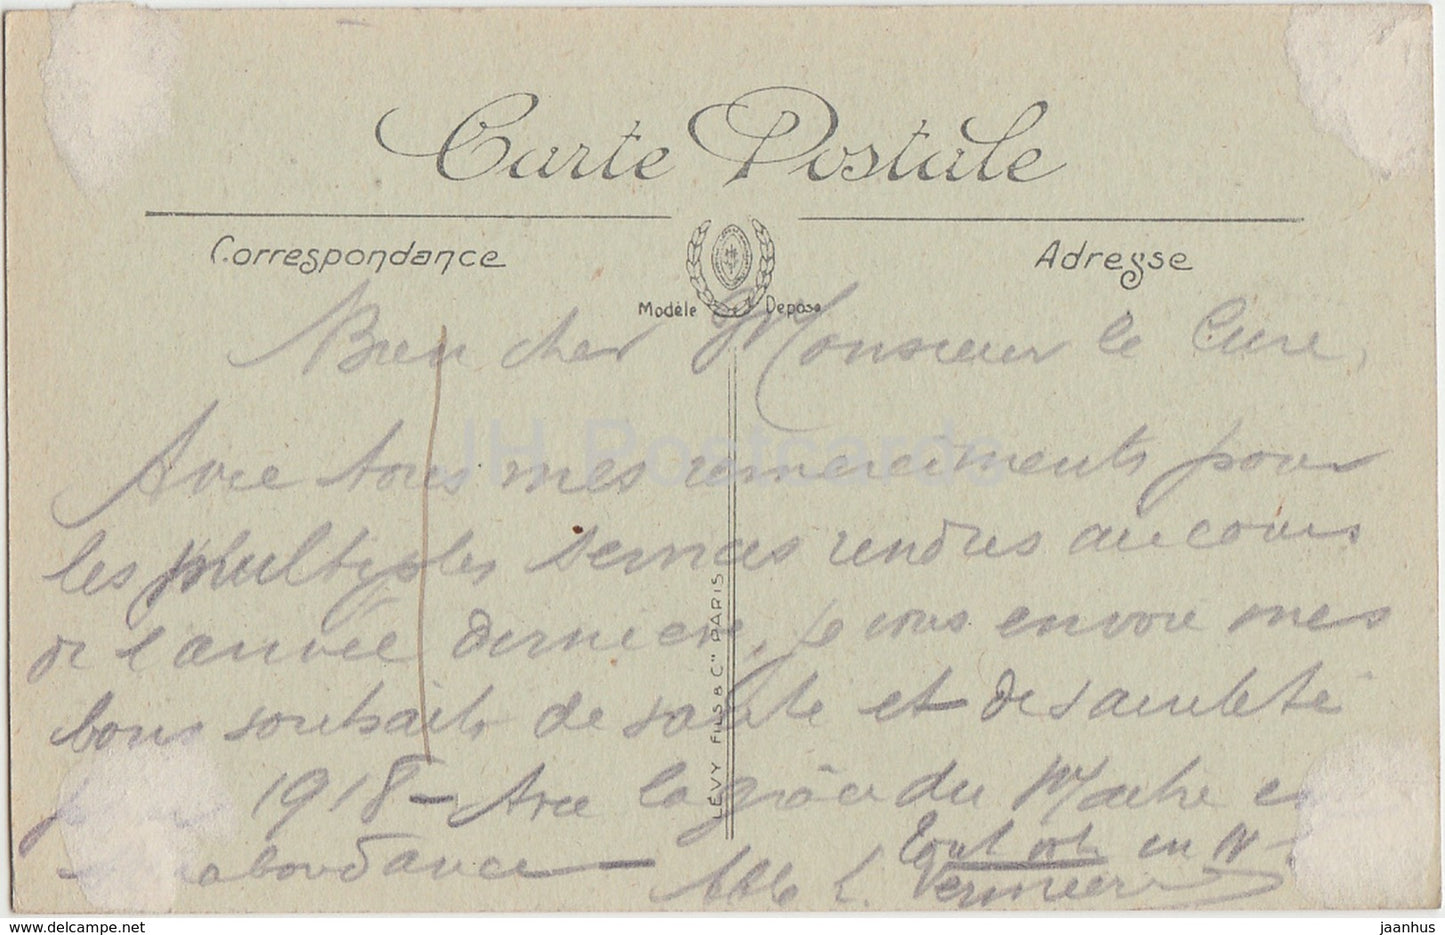 Carte Postale
Correspondance
Adresse
Modèle Déposé
Bien cher Monsieur le Curé,
Avec tous mes remerciments pour
les multiples services rendus au cours
de l'année dernière, je vous envoie mes
bons souhaits de santé et de sainteté
pour 1918 - Avec la grâce du Maître en
surabondance -
Tout votre en N.
Abbé L. Vermeer
LÉVY FILS & Cie PARIS
JH Postcards
delcampe.net
jaanhus